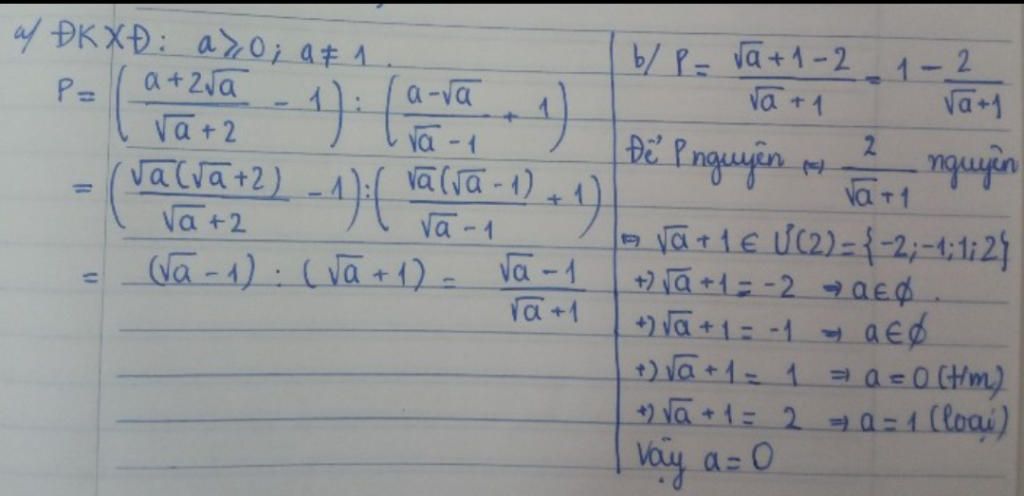 a/ ĐKXĐ: a ≥ 0; a ≠ 1.
P = ((a + 2√a)/(√a + 2) - 1) : ((a - √a)/(√a - 1) + 1)
= ((√a(√a + 2))/(√a + 2) - 1) : ((√a(√a - 1))/(√a - 1) + 1)
= (√a - 1) : (√a + 1) = (√a - 1)/(√a + 1)
b/ P = (√a + 1 - 2)/(√a + 1) = 1 - 2/(√a + 1)
Để P nguyên ⇔ 2/(√a + 1) nguyên
⇔ √a + 1 ∈ Ư(2) = {-2; -1; 1; 2}
+) √a + 1 = -2 ⇒ a ∈ ∅.
+) √a + 1 = -1 ⇒ a ∈ ∅
+) √a + 1 = 1 ⇒ a = 0 (t/m)
+) √a + 1 = 2 ⇒ a = 1 (loại)
Vậy a = 0